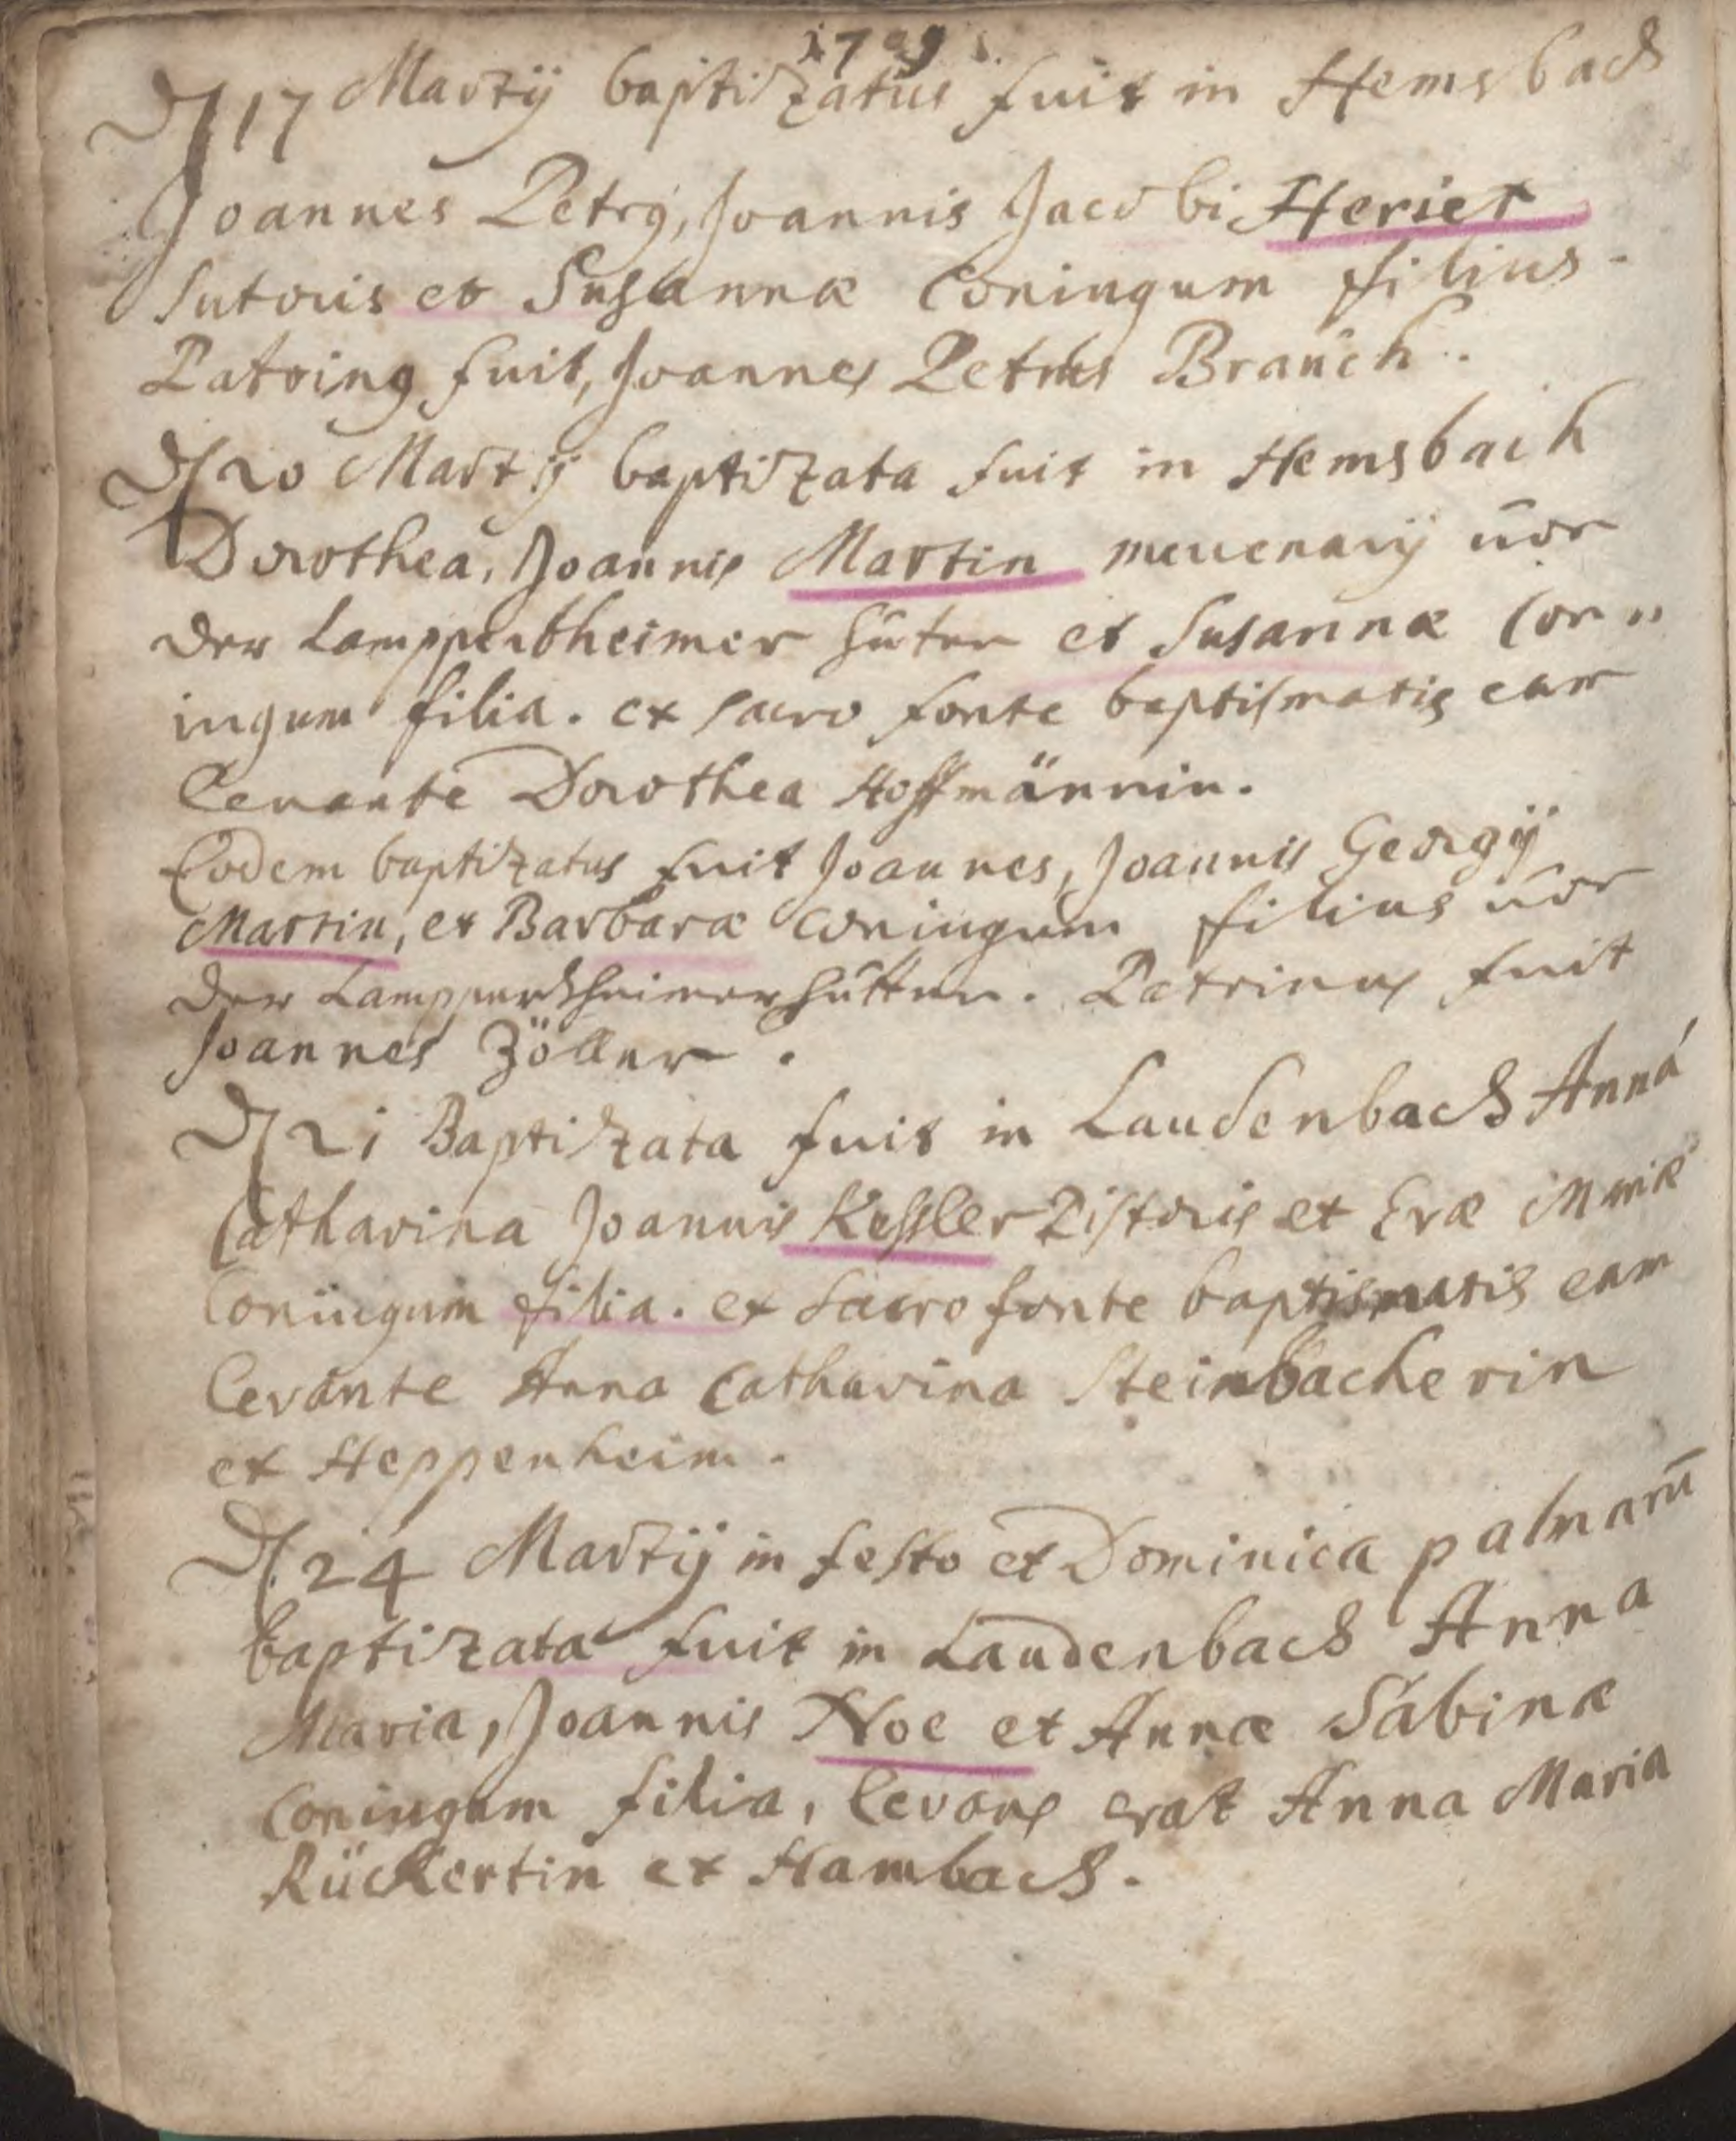 1709
D 17 Martij baptizatus fuit in Hemsbach
Joannes Petrg, Joannis Jacobi Heriet
Sutoris et Susannæ Coniugum filius.
Patring fuit, Joannes Petrus Braüch.
D 20 Martij baptizata fuit in Hemsbaich
Dorothea, Joannis Martin mercenarij vor
der Lamppertheimer hüter et Susannæ Con"
iugum filia. ex sacro fonte baptismatis eam
levante Dorothea Hoffmännin.
Eodem baptizatus fuit Joannes, Joannis Georgij
Martin, et Barbaræ Coniugum filius vor
der Lampperdtheimer hütten. Patrinus fuit
Joannes Zöller.
D 21 Baptizata fuit in Laudenbach Anna
Catharina Joannis Kessler Pistoris et Evæ Mariæ
Coniiugum filia. ex Sacro fonte baptismatis eam
levante Anna Catharina Steinbacherin
ex Heppenheim.
D. 24 Martij in festo et Dominica palmarū
baptizata fuit in Laudenbach Anna
Maria, Joannis Noe et Annæ Sabinæ
Coniugum filia, levans erat Anna Maria
Rückertin ex Hambach.